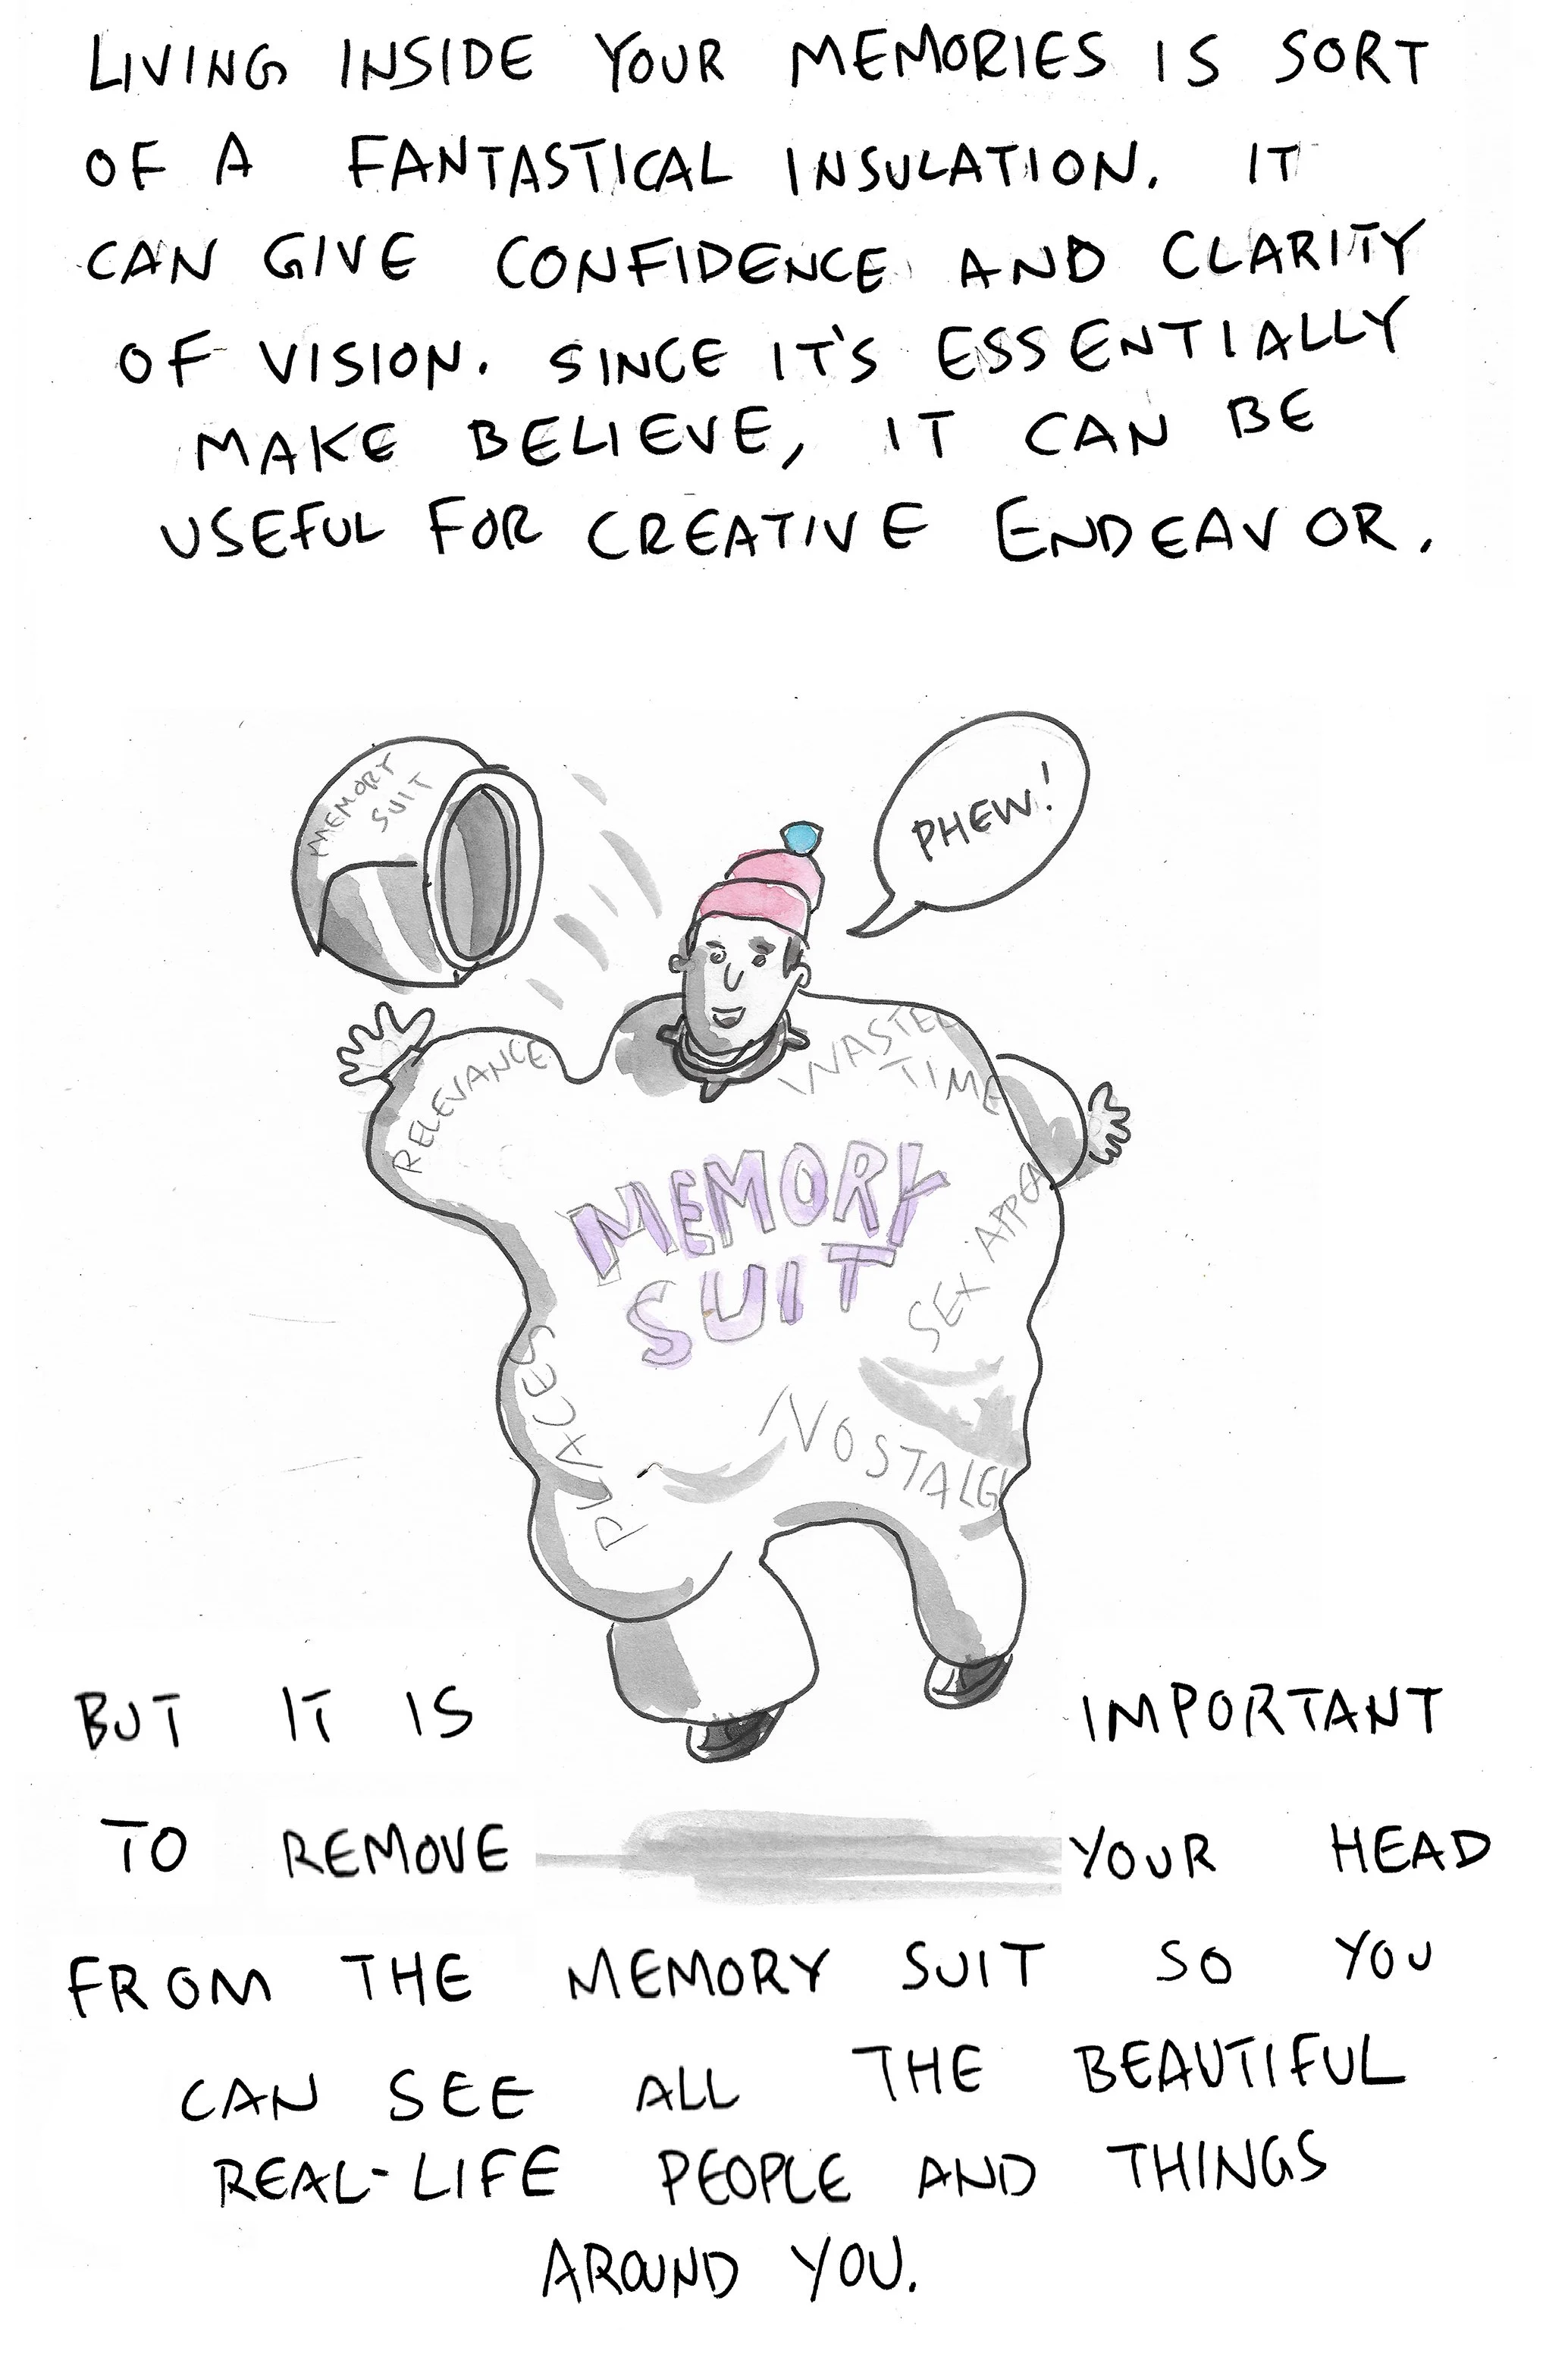 LIVING INSIDE YOUR MEMORIES IS SORT
OF A FANTASTICAL INSULATION. IT
CAN GIVE CONFIDENCE AND CLARITY
OF VISION. SINCE IT'S ESSENTIALLY
MAKE BELIEVE, IT CAN BE
USEFUL FOR CREATIVE ENDEAVOR.
MEMORY
SUIT
PHEW!
RELEVANCE
WASTED
TIME
MEMORY
SUIT
SEX APPEA
PLACES
NOSTALGI
BUT IT IS IMPORTANT
TO REMOVE YOUR HEAD
FROM THE MEMORY SUIT SO YOU
CAN SEE ALL THE BEAUTIFUL
REAL-LIFE PEOPLE AND THINGS
AROUND YOU.